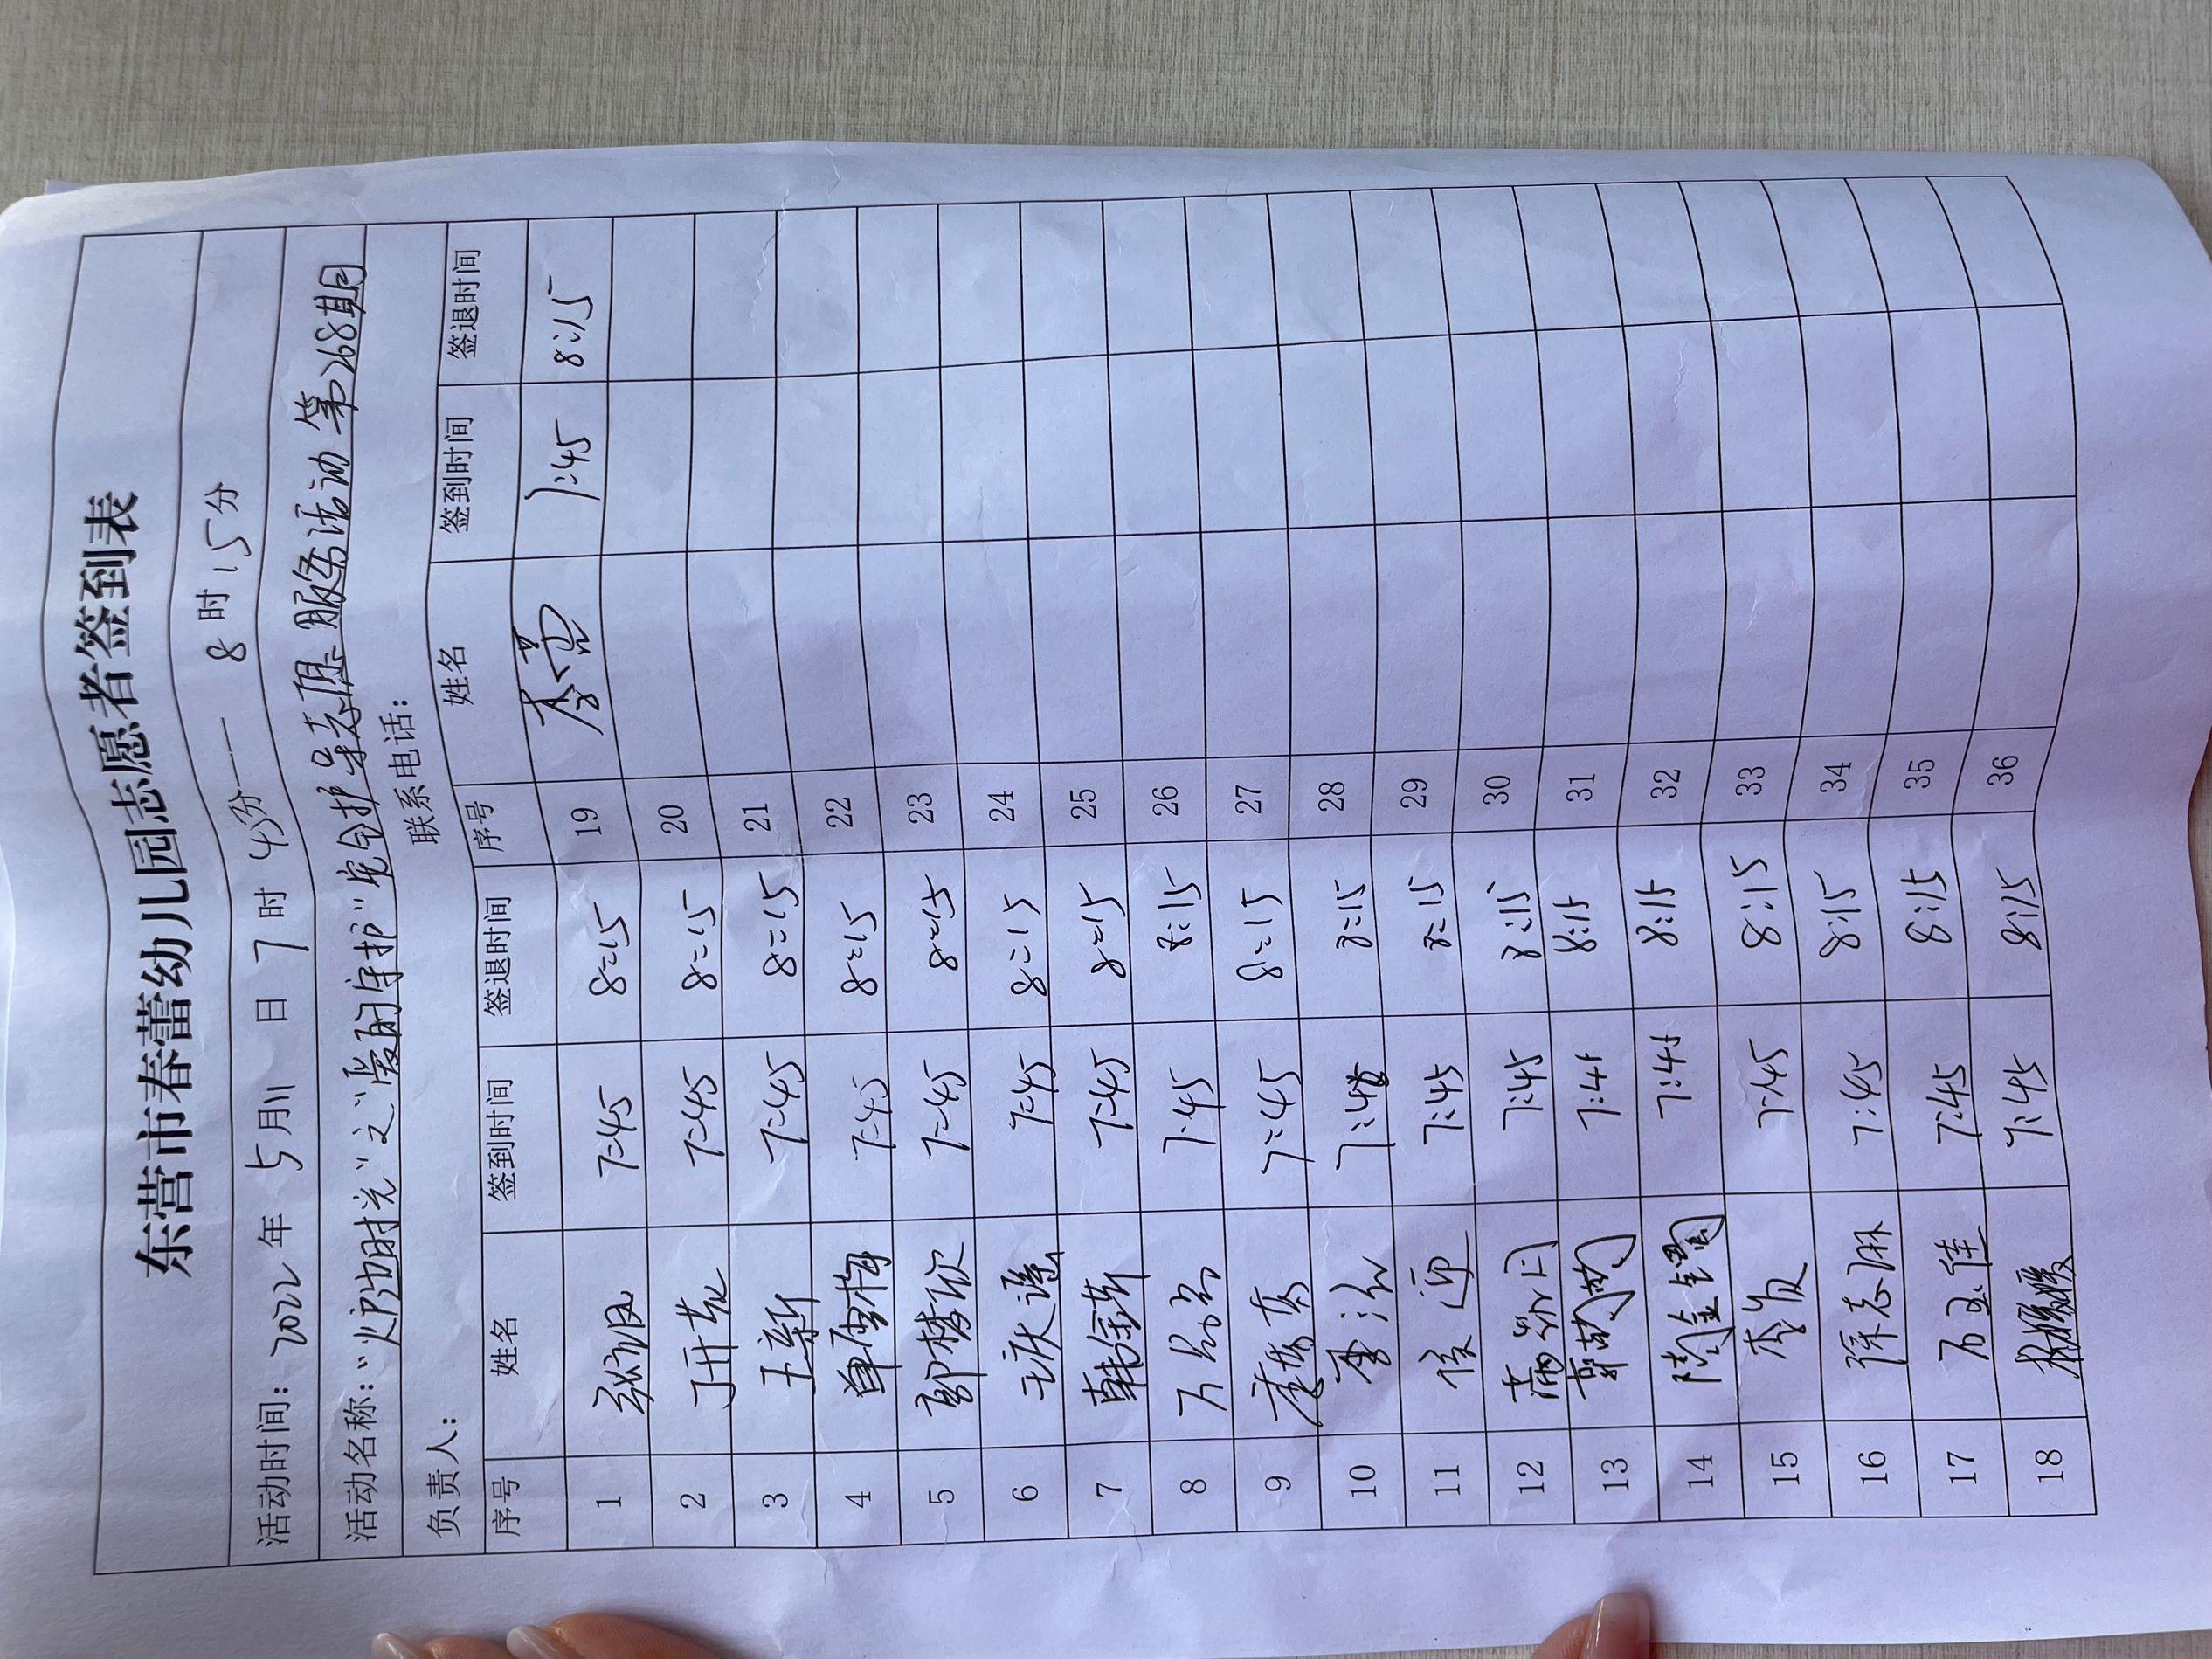 东营市春蕾幼儿园志愿者签到表
活动时间: 2022 年 5 月 11 日 7 时 45分 — 8 时 15 分
活动名称: "火防时光"之"爱的守护"安全护导志愿服务活动 第268期
负责人: 联系电话:
序号 姓名 签到时间 签退时间 序号 姓名 签到时间 签退时间
1 7:45 8:15 19 7:45 8:15
2 7:45 8:15 20
3 王新 7:45 8:15 21
4 单雪梅 7:45 8:15 22
5 郭梦欣 7:45 8:15 23
6 7:45 8:15 24
7 韩金莉 7:45 8:15 25
8 7:45 8:15 26
9 7:45 8:15 27
10 7:45 8:15 28
11 侯迎 7:45 8:15 29
12 7:45 8:15 30
13 郭菊 7:45 8:15 31
14 7:45 8:15 32
15 7:45 8:15 33
16 徐志琳 7:45 8:15 34
17 石玉佳 7:45 8:15 35
18 杨媛媛 7:45 8:15 36